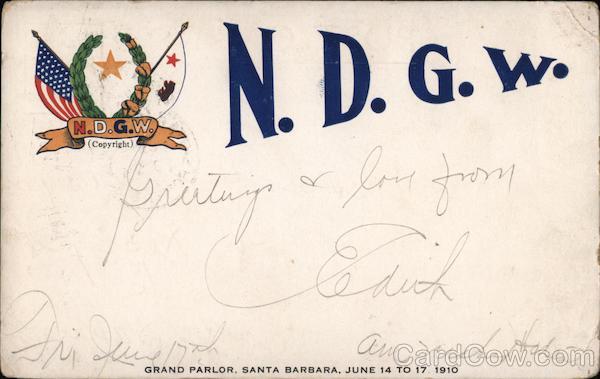 N. D. G. W.
N.D.G.W.
(Copyright)
Greetings & love from
Edith
Fri June 17th
GRAND PARLOR, SANTA BARBARA, JUNE 14 TO 17 1910
© CardCow.com